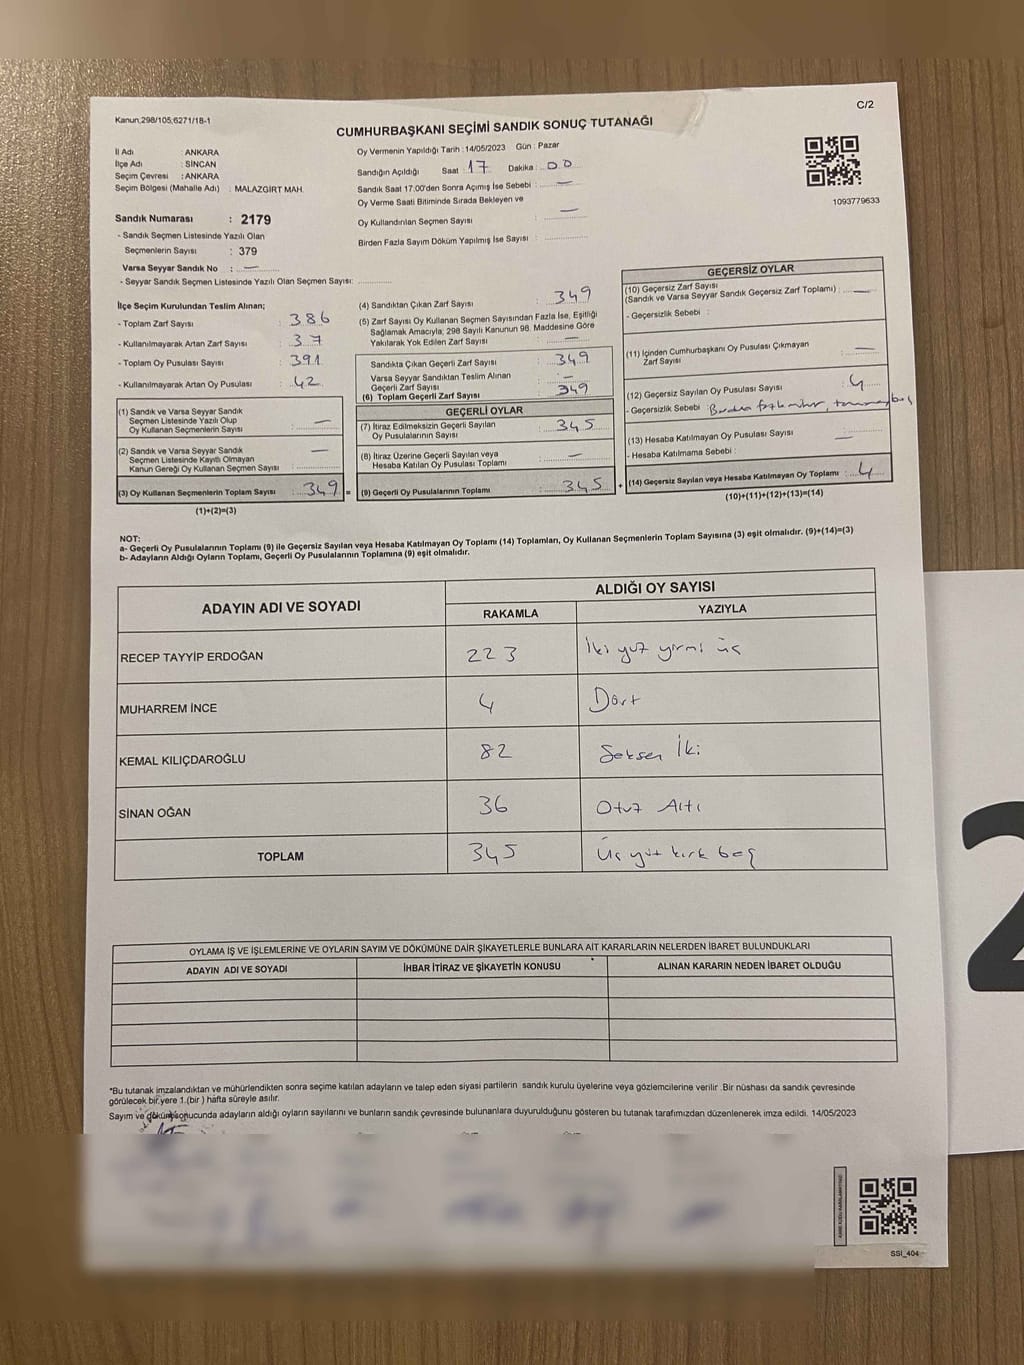 C/2
Kanun;298/105;6271/18-1
CUMHURBAŞKANI SEÇİMİ SANDIK SONUÇ TUTANAĞI
İl Adı : ANKARA
İlçe Adı : SİNCAN
Seçim Çevresi : ANKARA
Seçim Bölgesi (Mahalle Adı) : MALAZGİRT MAH.
Oy Vermenin Yapıldığı Tarih :14/05/2023 Gün : Pazar
Sandığın Açıldığı Saat : 17 Dakika : 00
Sandık Saat 17:00'den Sonra Açımış İse Sebebi : —
Oy Verme Saati Bitiminde Sırada Bekleyen ve
Oy Kullandırılan Seçmen Sayısı : —
Birden Fazla Sayım Döküm Yapılmış İse Sayısı :
1093779633
Sandık Numarası : 2179
- Sandık Seçmen Listesinde Yazılı Olan
Seçmenlerin Sayısı : 379
Varsa Seyyar Sandık No : —
- Seyyar Sandık Seçmen Listesinde Yazılı Olan Seçmen Sayısı:
İlçe Seçim Kurulundan Teslim Alınan;
- Toplam Zarf Sayısı : 386
- Kullanılmayarak Artan Zarf Sayısı : 37
- Toplam Oy Pusulası Sayısı : 391
- Kullanılmayarak Artan Oy Pusulası : 42
(1) Sandık ve Varsa Seyyar Sandık
Seçmen Listesinde Yazılı Olup
Oy Kullanan Seçmenlerin Sayısı : —
(2) Sandık ve Varsa Seyyar Sandık
Seçmen Listesinde Kayıtlı Olmayan
Kanun Gereği Oy Kullanan Seçmen Sayısı : —
(3) Oy Kullanan Seçmenlerin Toplam Sayısı : 349 =
(1)+(2)=(3)
(4) Sandıktan Çıkan Zarf Sayısı : 349
(5) Zarf Sayısı Oy Kullanan Seçmen Sayısından Fazla İse, Eşitliği
Sağlamak Amacıyla; 298 Sayılı Kanunun 98. Maddesine Göre
Yakılarak Yok Edilen Zarf Sayısı : —
Sandıkta Çıkan Geçerli Zarf Sayısı : 349
Varsa Seyyar Sandıktan Teslim Alınan
Geçerli Zarf Sayısı : —
(6) Toplam Geçerli Zarf Sayısı : 349
GEÇERLİ OYLAR
(7) İtiraz Edilmeksizin Geçerli Sayılan
Oy Pusulalarının Sayısı : 345
(8) İtiraz Üzerine Geçerli Sayılan veya
Hesaba Katılan Oy Pusulası Toplamı : —
(9) Geçerli Oy Pusulalarının Toplamı : 345 +
GEÇERSİZ OYLAR
(10) Geçersiz Zarf Sayısı
(Sandık ve Varsa Seyyar Sandık Geçersiz Zarf Toplamı) : —
- Geçersizlik Sebebi :
(11) İçinden Cumhurbaşkanı Oy Pusulası Çıkmayan
Zarf Sayısı : —
(12) Geçersiz Sayılan Oy Pusulası Sayısı : 4
- Geçersizlik Sebebi :
(13) Hesaba Katılmayan Oy Pusulası Sayısı : —
- Hesaba Katılmama Sebebi :
(14) Geçersiz Sayılan veya Hesaba Katılmayan Oy Toplamı : 4
(10)+(11)+(12)+(13)=(14)
NOT:
a- Geçerli Oy Pusulalarının Toplamı (9) ile Geçersiz Sayılan veya Hesaba Katılmayan Oy Toplamı (14) Toplamları, Oy Kullanan Seçmenlerin Toplam Sayısına (3) eşit olmalıdır. (9)+(14)=(3)
b- Adayların Aldığı Oyların Toplamı, Geçerli Oy Pusulalarının Toplamına (9) eşit olmalıdır.
ADAYIN ADI VE SOYADI
ALDIĞI OY SAYISI
RAKAMLA YAZIYLA
RECEP TAYYİP ERDOĞAN 223 İki yüz yirmi üç
MUHARREM İNCE 4 Dört
KEMAL KILIÇDAROĞLU 82 Seksen İki
SİNAN OĞAN 36 Otuz Altı
TOPLAM 345 Üç yüz kırk beş
OYLAMA İŞ VE İŞLEMLERİNE VE OYLARIN SAYIM VE DÖKÜMÜNE DAİR ŞİKAYETLERLE BUNLARA AİT KARARLARIN NELERDEN İBARET BULUNDUKLARI
ADAYIN ADI VE SOYADI İHBAR İTİRAZ VE ŞİKAYETİN KONUSU ALINAN KARARIN NEDEN İBARET OLDUĞU
*Bu tutanak imzalandıktan ve mühürlendikten sonra seçime katılan adayların ve talep eden siyasi partilerin sandık kurulu üyelerine veya gözlemcilerine verilir .Bir nüshası da sandık çevresinde
görülecek bir yere 1.(bir ) hafta süreyle asılır.
Sayım ve dökümü sonucunda adayların aldığı oyların sayılarını ve bunların sandık çevresinde bulunanlara duyurulduğunu gösteren bu tutanak tarafımızdan düzenlenerek imza edildi. 14/05/2023
SSI_404
2